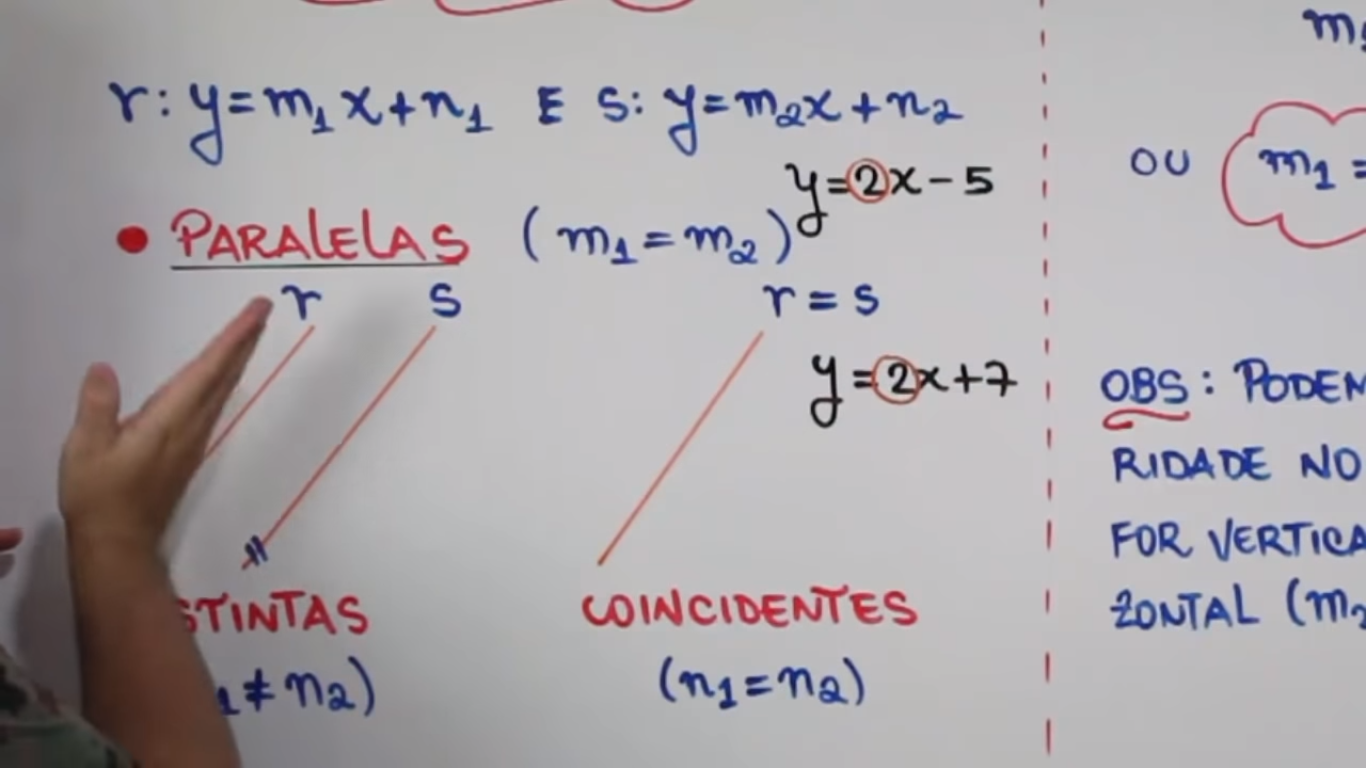 r: y=m₁x+n₁ E s: y=m₂x+n₂
y=2x-5
• PARALELAS (m₁=m₂)
r s
r = s
y=2x+7
STINTAS
₁≠n₂)
COINCIDENTES
(n₁=n₂)
OU m₁ =
OBS: PODEM
RIDADE NO
FOR VERTICA
ZONTAL (m₂